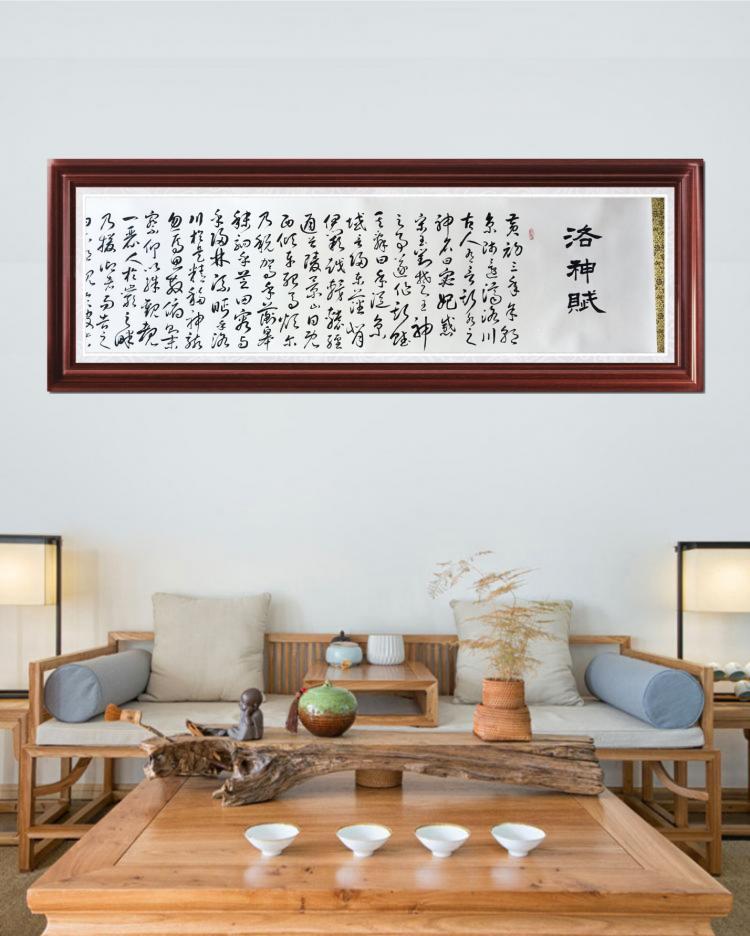 洛神賦
黃初三年余朝
京師還濟洛川
古人有言斯水之
神名曰宓妃感
宋玉對楚王神
之事遂作斯賦
其辭曰余從京
域言歸東藩背
伊闕越轘轅經
通谷陵景山日既
西傾車殆馬煩爾
乃稅駕乎蘅皋
秣駟乎芝田容與
乎陽林流眄乎洛
川於是精移神駭
忽焉思散俯則未
察仰以殊觀覩
一麗人於巖之畔
乃援御者而告之